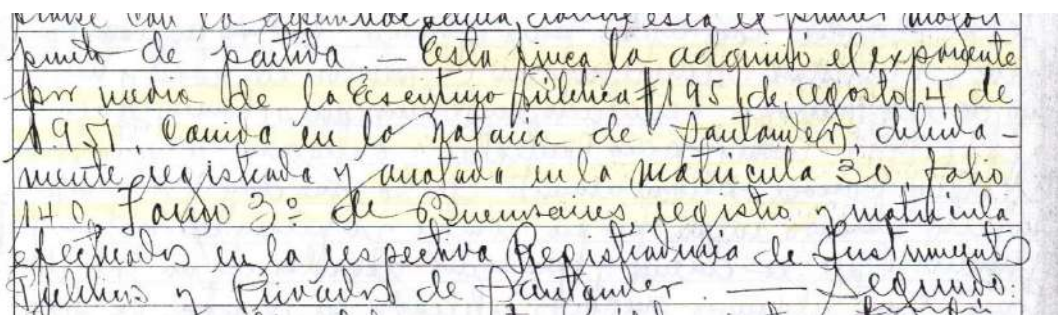 con la está el primer mojon
punto de partida. — Esta finca la adquirió el exponente
por medio de la Escritura Pública #195 de agosto 4 de
1.951, corrida en la Notaria de Santander, debida-
mente registrada y anotada en la matricula 30, folio
140, Tomo 3º de Buenosaires, registro y matricula
efectuados en la respectiva Registraduria de Instrumentos
Públicos y Privados de Santander. — Segundo: